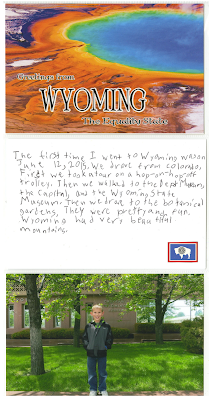 Greetings from
WYOMING
The Equality State
The first time I went to Wyoming was on
June 12, 2015. We drove from Colorado.
First we took a tour on a hop-on-hop off
trolley. Then we walked to the Depot Museum,
the Capital, and the Wyoming State
Museum. Then we drove to the botanical
gardens. They were pretty and fun.
Wyoming had very beautiful
mountains.